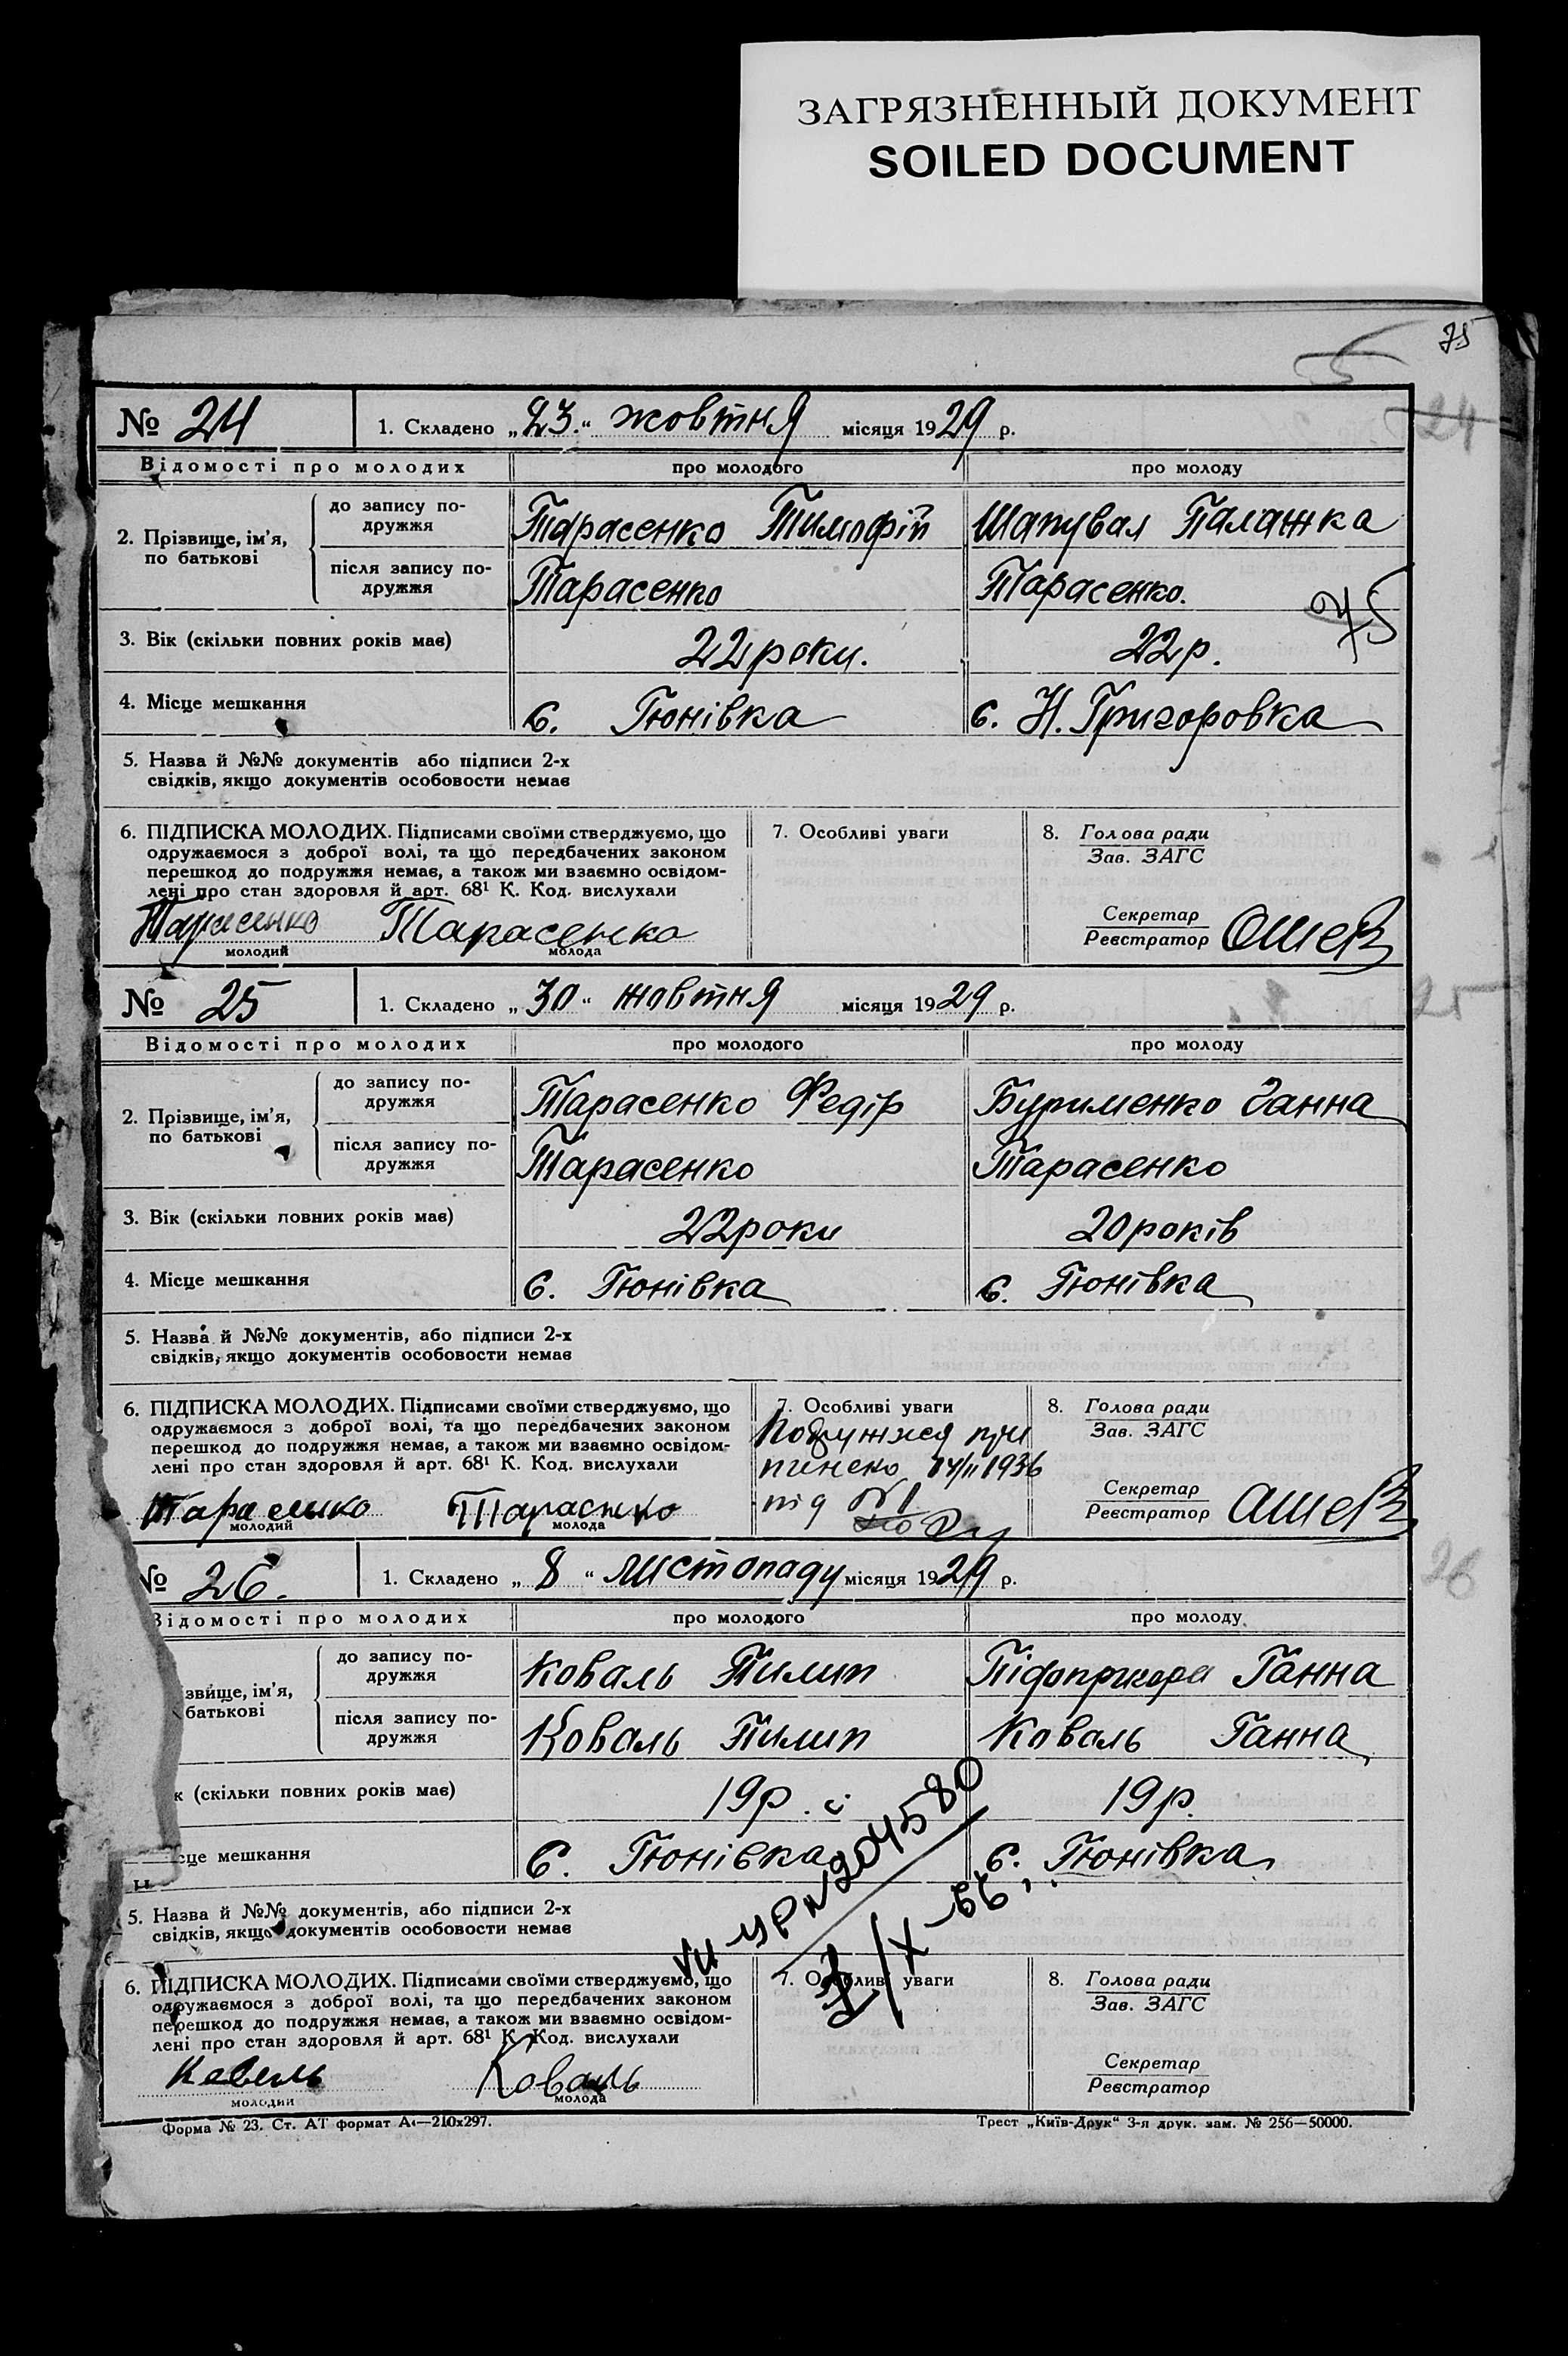 ЗАГРЯЗНЕННЫЙ ДОКУМЕНТ
SOILED DOCUMENT
75
24
№ 24 1. Складено „23“ жовтня місяця 1929 р.
Відомості про молодих про молодого про молоду
2. Прізвище, ім'я, по батькові
до запису подружжя Тарасенко Тимофій Шапувал Палажка
після запису подружжя Тарасенко Тарасенко.
75
3. Вік (скільки повних років має) 22 роки. 22 р.
4. Місце мешкання с. Гюнівка с. Н. Григоровка
5. Назва й №№ документів або підписи 2-х
свідків, якщо документів особовости немає
6. ПІДПИСКА МОЛОДИХ. Підписами своїми стверджуємо, що
одружаємося з доброї волі, та що передбачених законом
перешкод до подружжя немає, а також ми взаємно освідом-
лені про стан здоровля й арт. 68¹ К. Код. вислухали
Тарасенко Тарасенко
молодий молода
7. Особливі уваги
8. Голова ради
Зав. ЗАГС
Секретар
Реєстратор
25
№ 25 1. Складено „30“ жовтня місяця 1929 р.
Відомості про молодих про молодого про молоду
2. Прізвище, ім'я, по батькові
до запису подружжя Тарасенко Федір Бурименко Ганна
після запису подружжя Тарасенко Тарасенко
3. Вік (скільки повних років має) 22 роки 20 років
4. Місце мешкання с. Гюнівка с. Гюнівка
5. Назва й №№ документів, або підписи 2-х
свідків, якщо документів особовости немає
6. ПІДПИСКА МОЛОДИХ. Підписами своїми стверджуємо, що
одружаємося з доброї волі, та що передбачених законом
перешкод до подружжя немає, а також ми взаємно освідом-
лені про стан здоровля й арт. 68¹ К. Код. вислухали
Тарасенко Тарасенко
молодий молода
7. Особливі уваги
при
пинено 14/II 1936
під № 1
8. Голова ради
Зав. ЗАГС
Секретар
Реєстратор
26
№ 26. 1. Складено „8“ листопаду місяця 1929 р.
Відомості про молодих про молодого про молоду
звище, ім'я,
батькові
до запису подружжя Коваль Пилип Підопригора Ганна
після запису подружжя Коваль Пилип Коваль Ганна
к (скільки повних років має) 19 р. 19 р.
сце мешкання с. Гюнівка с. Гюнівка
№ 204580
5. Назва й №№ документів, або підписи 2-х
свідків, якщо документів особовости немає
6. ПІДПИСКА МОЛОДИХ. Підписами своїми стверджуємо, що
одружаємося з доброї волі, та що передбачених законом
перешкод до подружжя немає, а також ми взаємно освідом-
лені про стан здоровля й арт. 68¹ К. Код. вислухали
Коваль Коваль
молодий молода
7. Особливі уваги
8. Голова ради
Зав. ЗАГС
Секретар
Реєстратор
Форма № 23. Ст. АТ формат А4—210х297.
Трест „Київ-Друк“ 3-я друк. зам. № 256—50000.